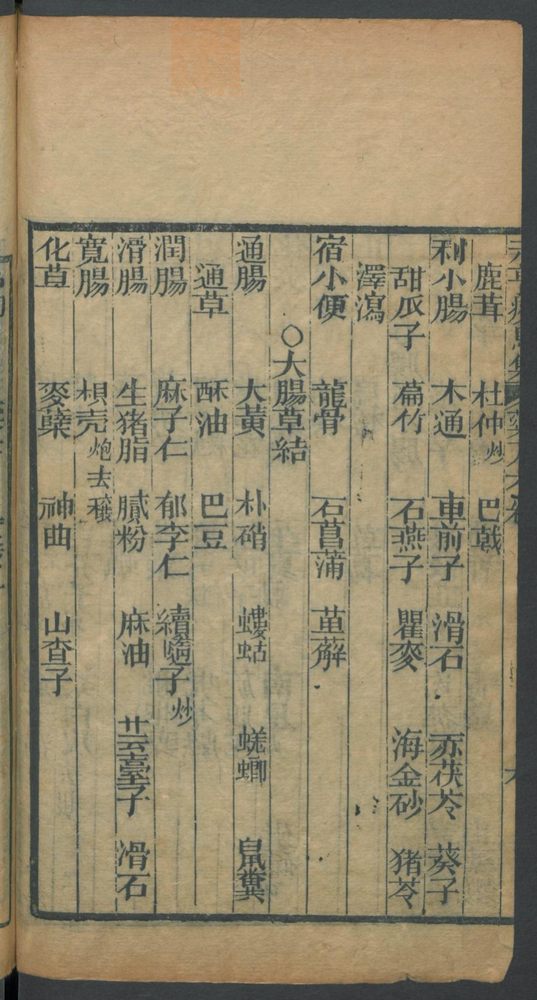 鹿茸　杜仲炒　巴戟
利小腸　木通　車前子　滑石　赤茯苓　葵子
甜瓜子　萹竹　石燕子　瞿麥　海金砂　猪苓
澤瀉
宿小便　龍骨　石菖蒲　萆薢
○大腸草結
通腸　大黃　朴硝　螻蛄　蜣螂　鼠糞
通草　酥油　巴豆
潤腸　麻子仁　郁李仁　續隨子炒
滑腸　生猪脂　膩粉　麻油　芸臺子　滑石
寬腸　枳壳炮去穰
化草　麥蘖　神曲　山查子